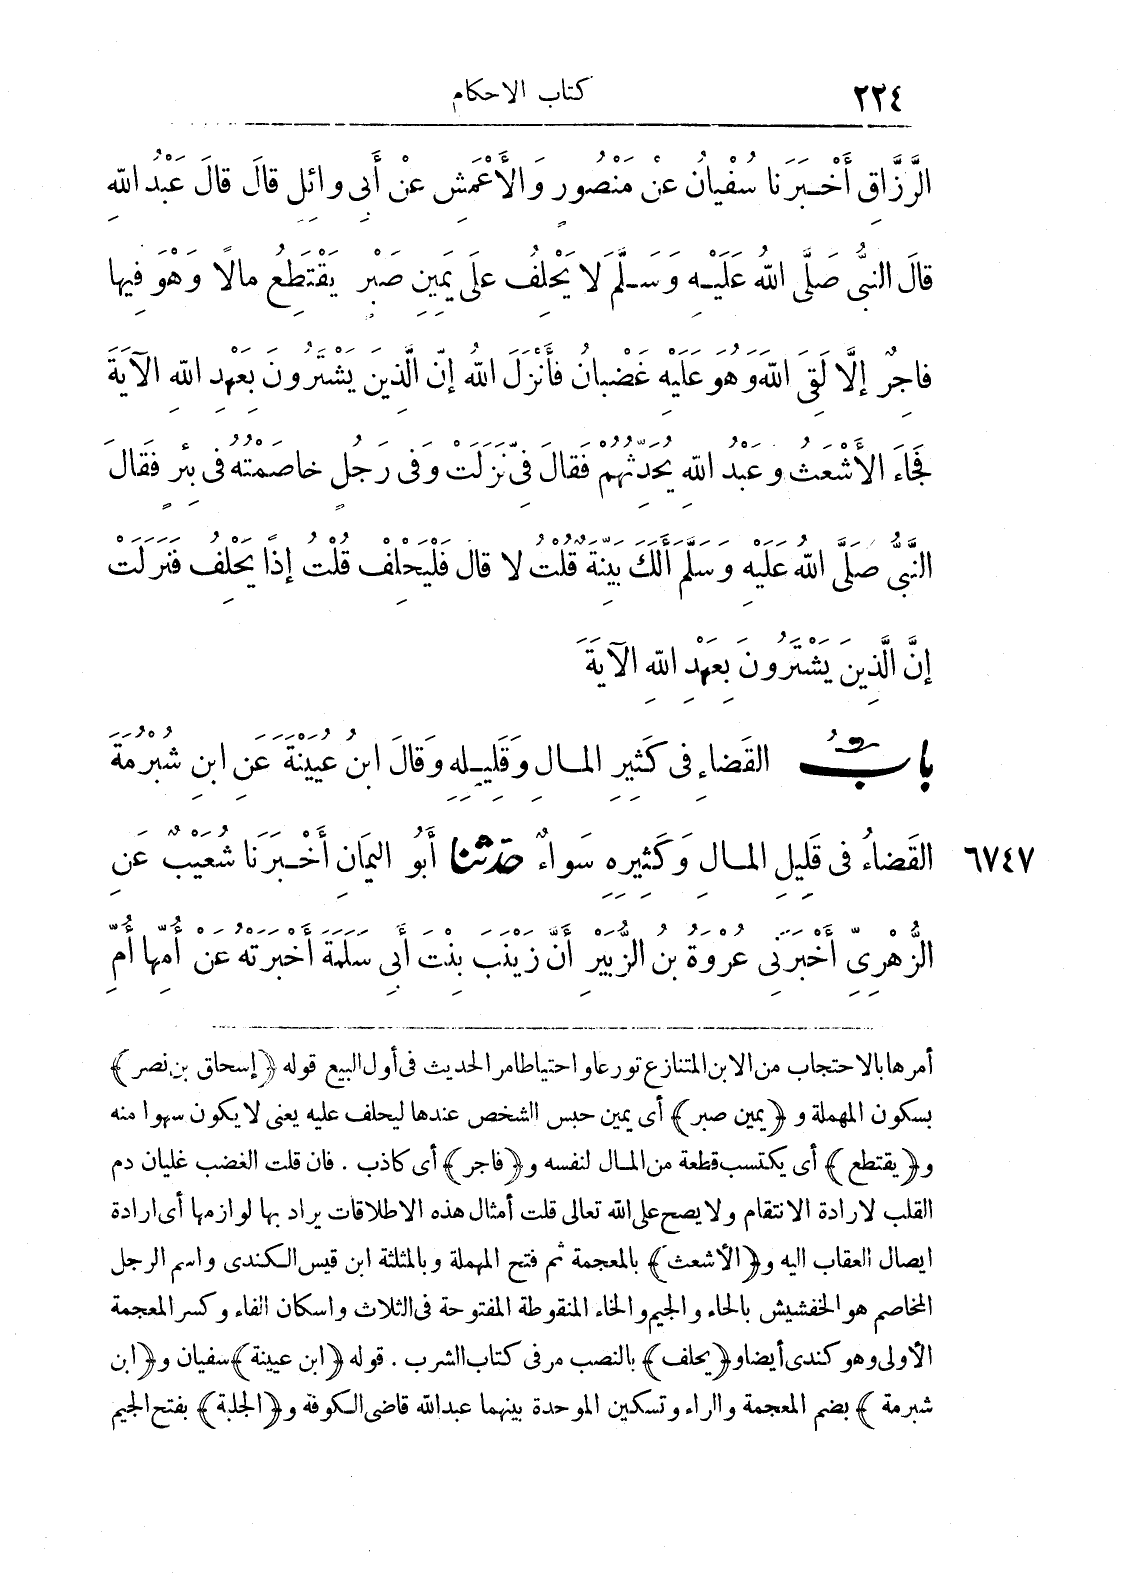 ٢٢٤ كتاب الاحكام
الرَّزَّاقِ أَخْبَرَنا سُفْيانُ عنْ مَنْصُورٍ وَالأَعْمَشِ عنْ أَبِى وائِلٍ قالَ قالَ عَبْدُ اللهِ
قالَ النبىُّ صَلَّى اللهُ عَلَيْهِ وَسَلَّمَ لا يَحْلِفُ علَى يَمِينِ صَبْرٍ يَقْتَطِعُ مالًا وَهْوَ فِيها
فاجِرٌ إِلَّا لَقِىَ اللهَ وَهُوَ عَلَيْهِ غَضْبانُ فأَنْزَلَ اللهُ إنَّ الَّذِينَ يَشْتَرُونَ بِعَهْدِ اللهِ الآيَةَ
فَجَاءَ الأَشْعَثُ وعَبْدُ اللهِ يُحَدِّثُهُمْ فَقالَ فِىَّ نَزَلَتْ وَفى رَجُلٍ خاصَمْتُهُ فى بِئْرٍ فَقالَ
النَّبىُّ صَلَّى اللهُ عَلَيْهِ وَسَلَّمَ أَلَكَ بَيِّنَةٌ قُلْتُ لا قال فَلْيَحْلِفْ قُلْتُ إذًا يَحْلِفُ فَنَزَلَتْ
إنَّ الَّذِينَ يَشْتَرُونَ بِعَهْدِ اللهِ الآيَةَ
بابُ القَضاءِ فى كَثِيرِ المالِ وَقَلِيلِهِ وَقالَ ابنُ عُيَيْنَةَ عَنِ ابنِ شُبْرُمَةَ
٦٧٤٧ القَضاءُ فى قَلِيلِ المالِ وَكَثِيرِهِ سَواءٌ حَدَّثَنا أَبُو اليَمَانِ أَخْبَرَنا شُعَيْبٌ عَنِ
الزُّهْرِىِّ أَخْبَرَنِى عُرْوَةُ بنُ الزُّبَيْرِ أَنَّ زَيْنَبَ بِنْتَ أَبِى سَلَمَةَ أَخْبَرَتْهُ عَنْ أُمِّها أُمِّ
أمرها بالاحتجاب من الابن المتنازع تورعا واحتياطا مر الحديث فى أول البيع قوله ﴿إسحاق بن نصر﴾
بسكون المهملة و ﴿يمين صبر﴾ أى يمين حبس الشخص عندها ليحلف عليه يعنى لا يكون سهوا منه
و﴿يقتطع﴾ أى يكتسب قطعة من المال لنفسه و﴿فاجر﴾ أى كاذب . فان قلت الغضب غليان دم
القلب لارادة الانتقام ولا يصح على الله تعالى قلت أمثال هذه الاطلاقات يراد بها لوازمها أى ارادة
ايصال العقاب اليه و﴿الأشعث﴾ بالمعجمة ثم فتح المهملة وبالمثلثة ابن قيس الكندى واسم الرجل
المخاصم هو الخفشيش بالحاء والجيم والخاء المنقوطة المفتوحة فى الثلاث واسكان الفاء وكسر المعجمة
الأولى وهو كندى أيضا و﴿يحلف﴾ بالنصب مر فى كتاب الشرب . قوله ﴿ابن عيينة﴾ سفيان و﴿ابن
شبرمة﴾ بضم المعجمة والراء وتسكين الموحدة بينهما عبدالله قاضى الكوفة و﴿الجلبة﴾ بفتح الجيم